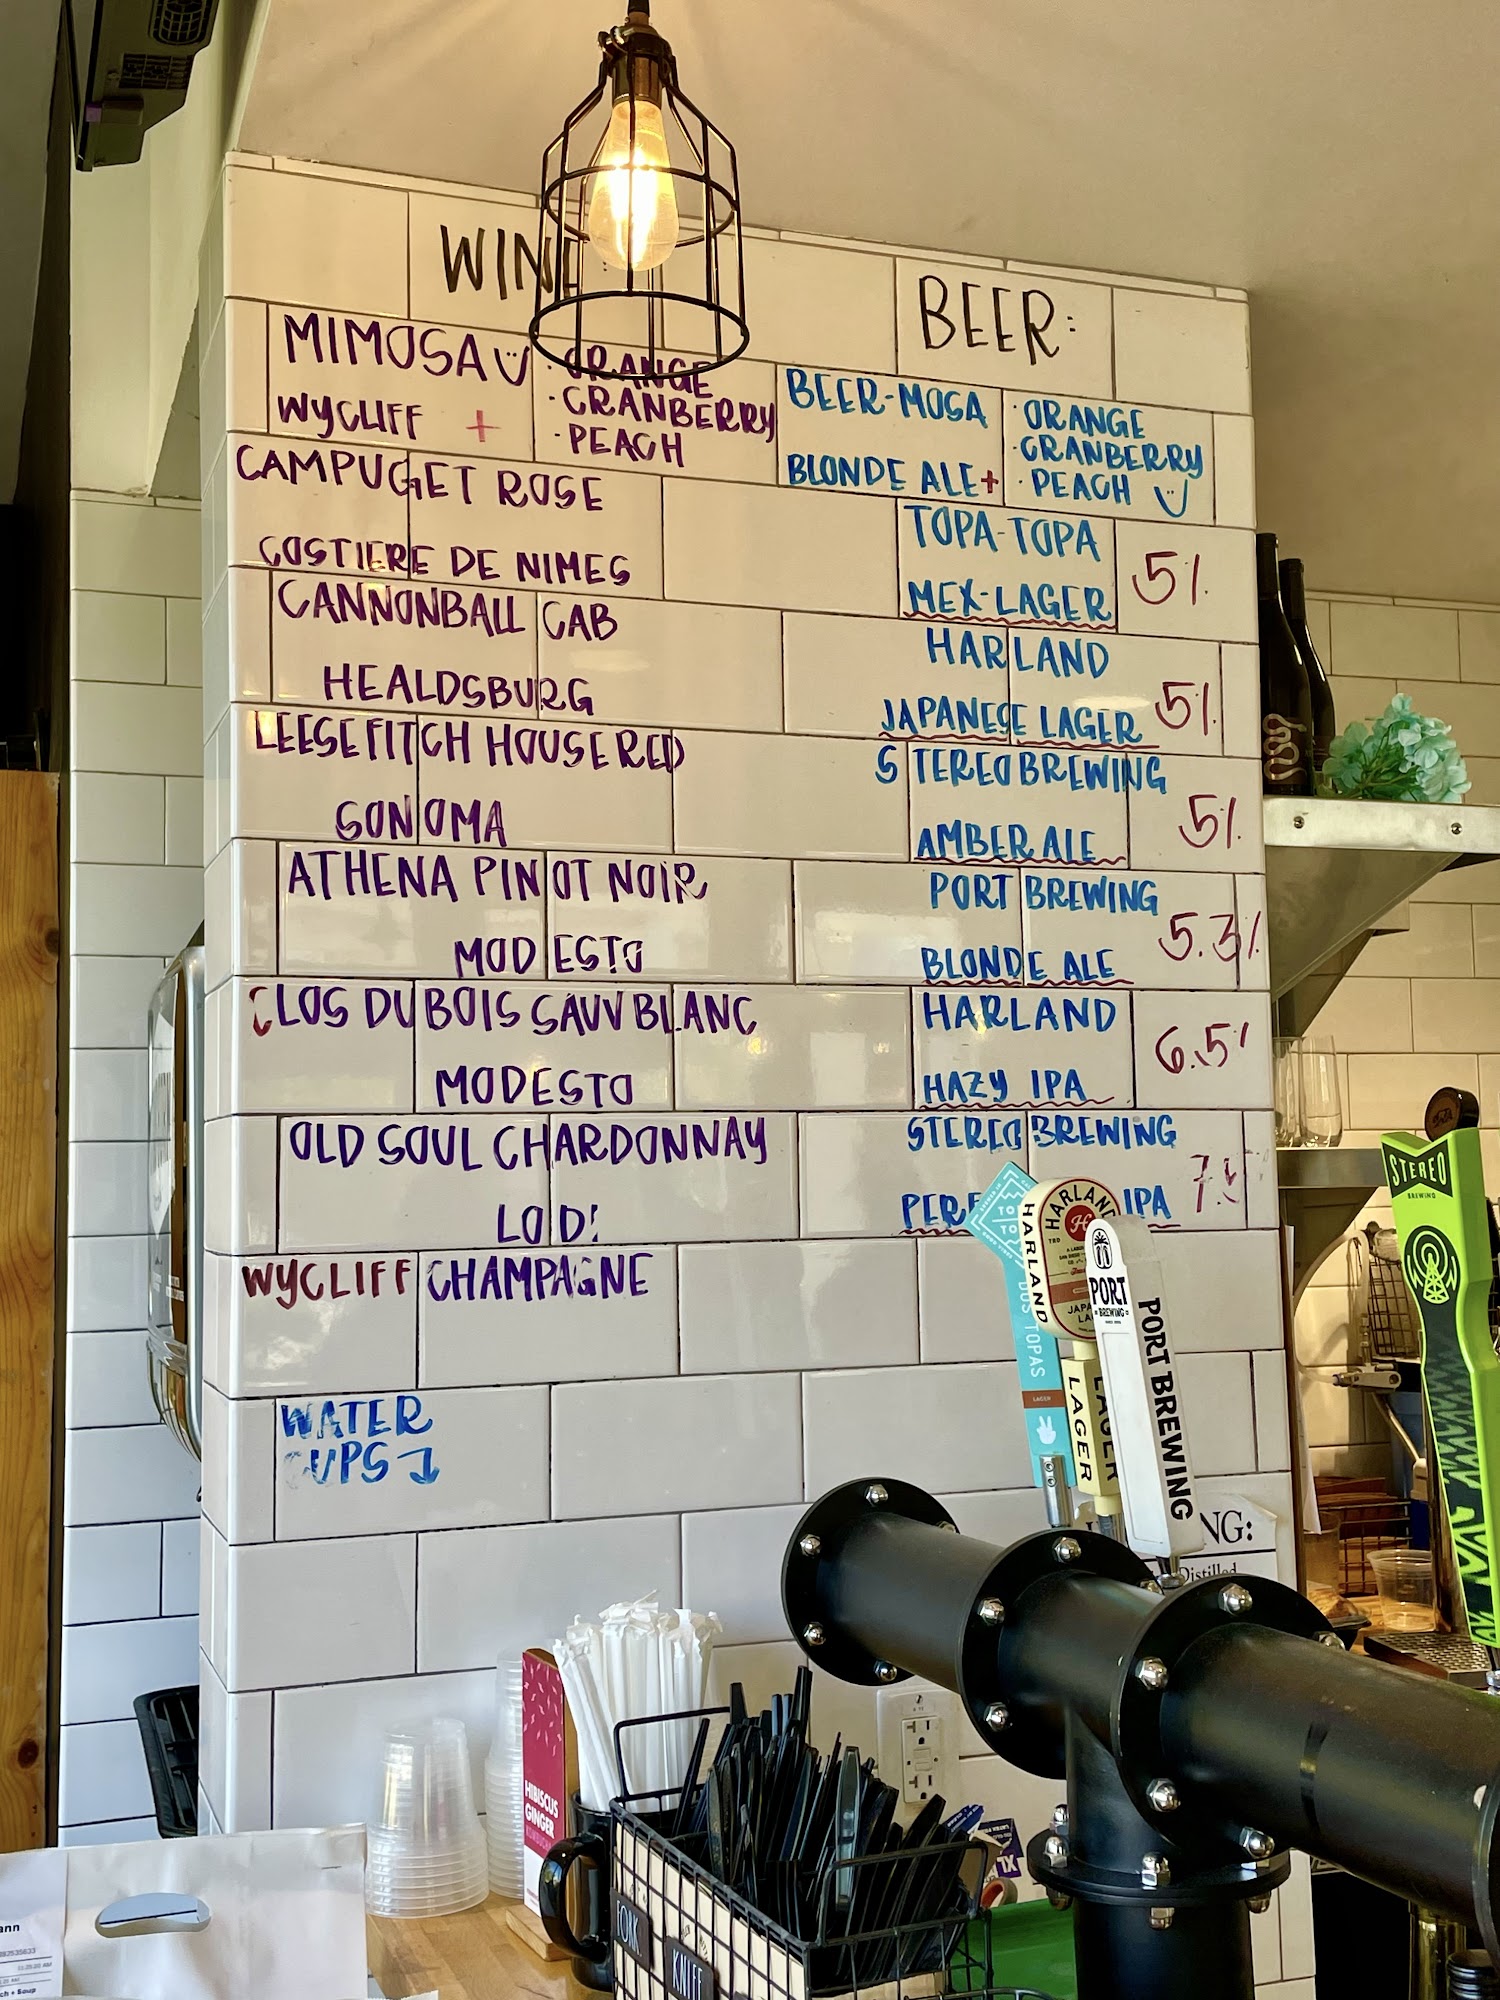 WINE:
MIMOSA
· ORANGE
· CRANBERRY
· PEACH
WYCLIFF +
CAMPUGET ROSE
COSTIERE DE NIMES
CANNONBALL CAB
HEALDSBURG
LEESE FITCH HOUSE RED
SONOMA
ATHENA PINOT NOIR
MODESTO
CLOS DU BOIS SAUV BLANC
MODESTO
OLD SOUL CHARDONNAY
LODI
WYCLIFF CHAMPAGNE
WATER
CUPS
BEER:
BEER-MOSA
· ORANGE
· CRANBERRY
· PEACH
BLONDE ALE+
TOPA-TOPA
MEX-LAGER 5%
HARLAND
JAPANESE LAGER 5%
STEREO BREWING
AMBER ALE 5%
PORT BREWING
BLONDE ALE 5.3%
HARLAND
HAZY IPA 6.5%
STEREO BREWING
IPA
HARLAND
HARLAND
DOS TOPAS
LAGER
LAGER
PORT
BREWING
PORT BREWING
STEREO
BREWING
NG:
Distilled
HIBISCUS
GINGER
FORK
KNIFE